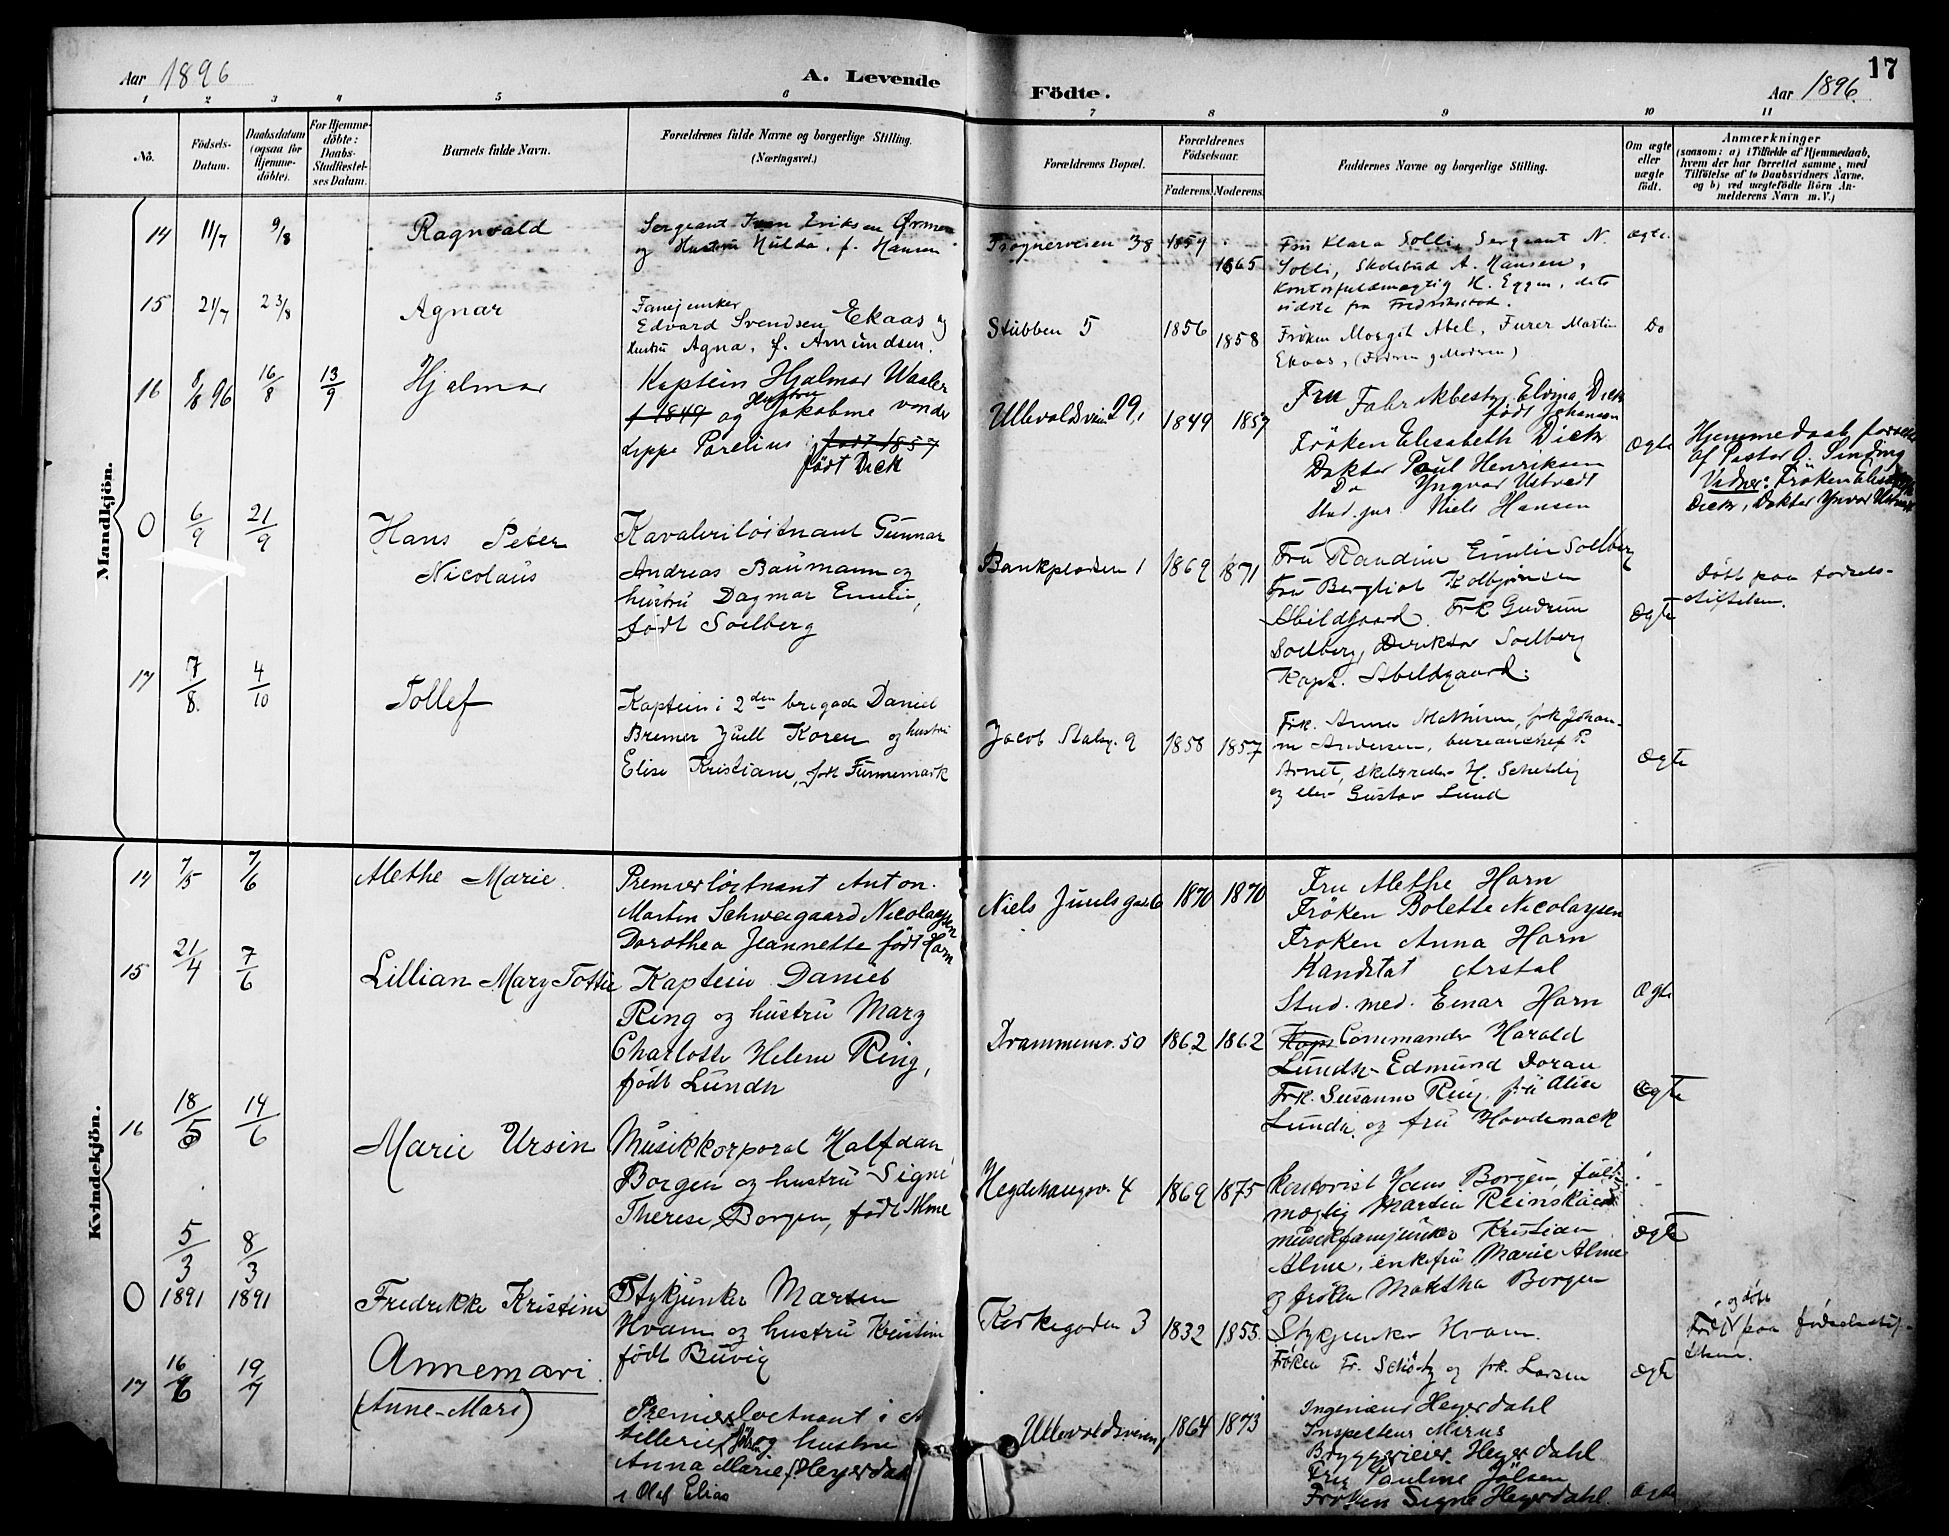 Aar 1896
A. Levende
Födte.
Aar 1896.
17
1 2 3 4 5 6 7 8 9 10 11
No.
Födsels-
Datum.
Daabsdatum
(ogsaa for
Hjemme-
döbte).
For Hjemme-
döbte:
Daabs-
Stadfæstel-
ses Datum.
Barnets fulde Navn.
Forældrenes fulde Navne og borgerlige Stilling.
(Næringsvei.)
Forældrenes Bopæl.
Forældrenes
Födselsaar.
Faderens. Moderens.
Faddernes Navne og borgerlige Stilling.
Om ægte
eller
uægte
födt.
Anmærkninger
(saasom: a) i Tilfælde af Hjemmedaab,
hvem der har forrettet samme, med
Tilföielse af to Daabsvidners Navne,
og b) ved uægtefödte Börn An-
melderens Navn m.V.)
Mandkjön.
14 11/7 9/8 Ragnvald
Sergeant Eriksen
og Hustru Hulda, f. Hansen
Frognerveien 38 1859 1865
Fru Klara Solli, Sergeant N.
Solli, A. Hansen,
Kontorfuldmægtig H. Eggen, dets
sidste fra Fredrikstad.
ægte
15 21/7 23/8 Agnar
Fanejunker
Edvard Svendsen Ekaas og
Hustru Agna, f. Amundsen.
Stubben 5 1856 1858
Fröken Margit Abel, Furer Martin
Ekaas, (Faderen og Modren)
Do
16 8/8 96 16/8 13/9 Hjalmar
Kaptein Hjalmar Waaler
f 1849 og Hustru Jakobine vonder
Lippe Parelius født 1857
født Dick
Ullevoldsveien 29, 1849 1857
Fru Elvina Dick
født Johansen
Fröken Elisabeth Dick
Doktor Poul Henriksen
Do Yngvar Ustvedt
Stud. jur. Niels Hansen
Ægte
Hjemmedaab
af Pastor O. Sinding
Vidner: Fröken Elisabeth
Dick, Doktor Yngvar Ustvedt
0 6/9 21/9 Hans Peter
Nicolaus
Kavaleriløitnant Gunnar
Andreas Baumann og
hustru Dagmar Emilie,
født Solberg
Bankpladsen 1 1869 1871
Fru Randine Emilie Solberg
Fru Bergliot Kolbjørnsen
Abildgaard. Frk Gudrun
Solberg, Direktør Solberg
Kapt. Abildgaard.
Ægte
Født paa fødsels-
stiftelsen.
17 7/8 4/10 Tollef
Kaptein i 2den brigade Daniel
Bremer Juell Koren og hustru
Elise Kristiane, født Funnemark
Jacob Aalsg. 9 1858 1857
Frk. Anna Mathisen, frk Johan-
ne Andersen, bureauchef R.
Arnet, skibsreder H. Schelelig
og elev Gustav Lund
Ægte
Kvindekjön.
14 7/5 7/6 Alethe Marie.
Premierløitnant Anton
Martin Schweigaard Nicolaysen
Dorothea Jeannette født Horn
Niels Juuls gade 6 1870 1870
Fru Alethe Horn
Fröken Bolette Nicolaysen
Frøken Anna Horn
Kandidat Arstal
Stud. med. Einar Horn
Ægte
15 21/4 7/6 Lillian Mary Tottie
Kaptein Daniel
Ring og hustru Mary
Charlotte Helene Ring,
født Lundh
Drammensv. 50 1862 1862
Kapt Commandør Harald
Lundh - Edmund Doran
Frk. Susanne Ring, fru Alice
Lundh. og fru
Ægte
16 18/5 14/6 Marie Ursin
Musikkorporal Halfdan
Borgen og hustru Signe
Therese Borgen, født Alme
Hegdehaugsv. 4 1869 1875
Kontorist Hans Borgen, fuld-
mægtig Martin
musikfanejunker Kristian
Alme, enkefru Marie Alme
og frøken Martha Borgen
Ægte
0 5/3 1891 8/3 1891 Fredrikke Kristine
Stykjunker Marten
Hvam og hustru Kristine
født Buvig
Kirkegaden 3 1832 1855
Stykjunker Hvam.
Frøken Fr. Schøtz og frk. Larsen
Ægte
Født og døbt paa fødselsstif-
telsen.
17 16/6 19/7 Annemari
(Anne-Mari)
Premierløitnant i Ar-
tilleriet og hustru
Anna Marie f Heyerdahl
Olaf Elias
Ullevoldsveien 1864 1873
Ingeniør Heyerdahl
Inspektør Mirus
Bryggerieier Heyerdahl
Fru Pauline Jølsen
Frøken Signe Heyerdahl.
Ægte